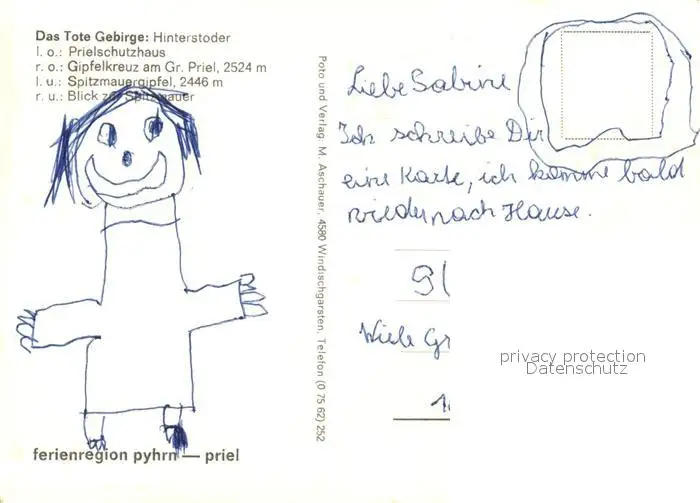 Das Tote Gebirge: Hinterstoder
l. o.: Prielschutzhaus
r. o.: Gipfelkreuz am Gr. Priel, 2524 m
l. u.: Spitzmauergipfel, 2446 m
r. u.: Blick zur Spitzmauer
ferienregion pyhrn — priel
Foto und Verlag: M. Aschauer, 4580 Windischgarsten. Telefon (0 75 62) 252
Liebe Sabine
Ich schreibe Dir
eine Karte, ich komme bald
wieder nach Hause.
Viele Gr
privacy protection
Datenschutz